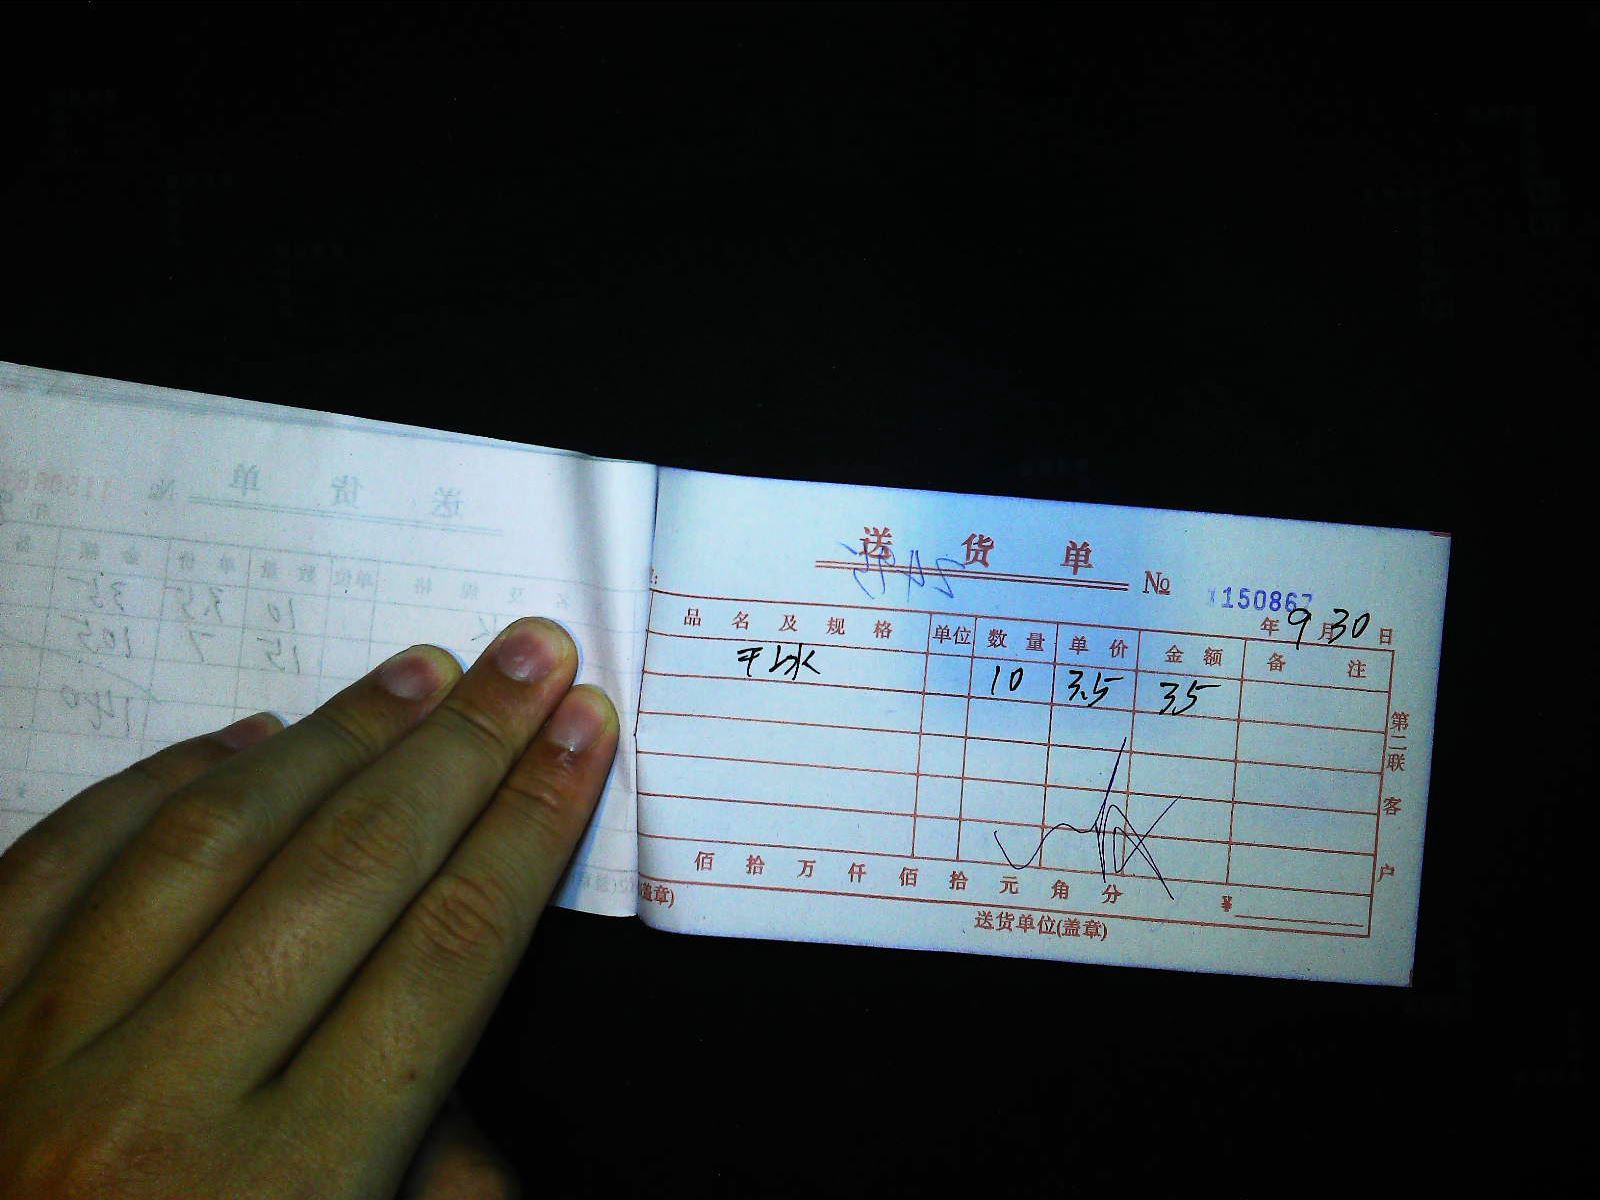 送 货 单
№ 1150867
年 9 月 30 日
品 名 及 规 格 单位 数 量 单 价 金 额 备 注
水 10 3.5 35
佰 拾 万 仟 佰 拾 元 角 分 ¥
盖章) 送货单位(盖章)
第二联 客户
送 货 单 №
10 3.5 35
15 7 105
140